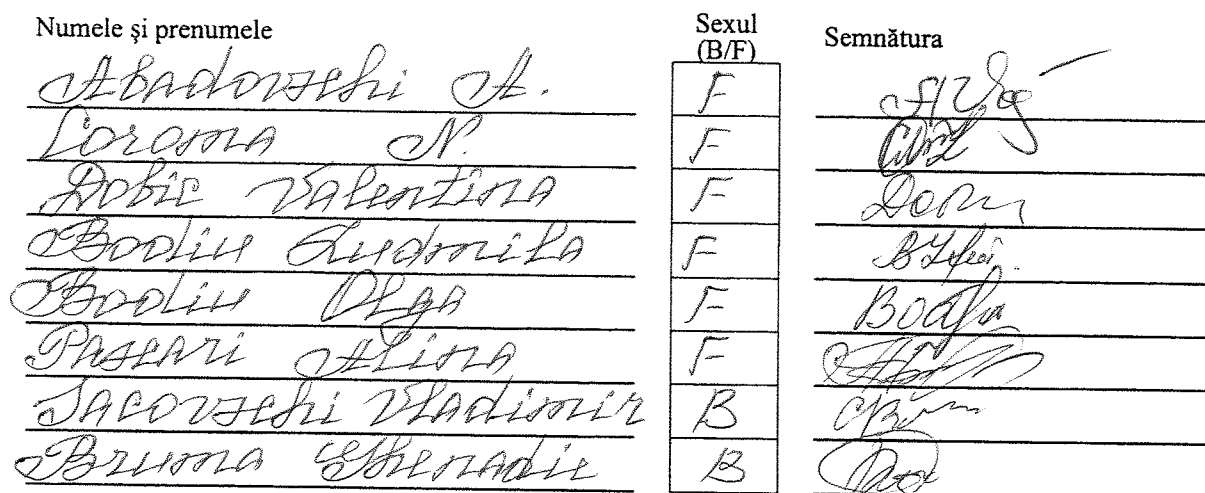 Numele și prenumele Sexul (B/F) Semnătura
Abadovschi A. F
Coroma N. F
Dobic Valentina F
Bodiu Ludmila F
Bodiu Olga F
Pascari Alina F
Iacovschi Vladimir B
Bruma Ghenadie B